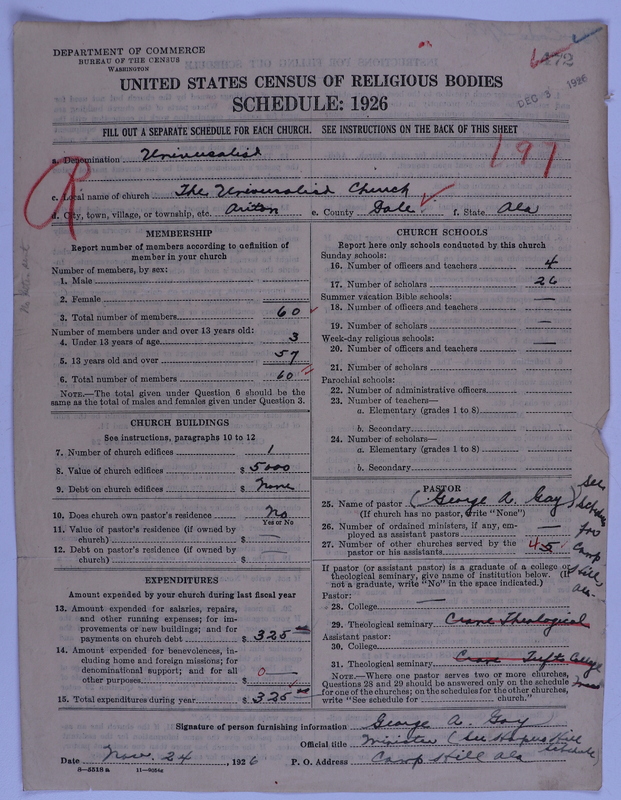 DEPARTMENT OF COMMERCE
BUREAU OF THE CENSUS
WASHINGTON
272
DEC 3 1926
UNITED STATES CENSUS OF RELIGIOUS BODIES
SCHEDULE: 1926
FILL OUT A SEPARATE SCHEDULE FOR EACH CHURCH. SEE INSTRUCTIONS ON THE BACK OF THIS SHEET
a. Denomination Universalist
191
R
c. Local name of church The Universalist Church
d. City, town, village, or township, etc. Ariton e. County Dale f. State Ala
MEMBERSHIP
Report number of members according to definition of
member in your church
Number of members, by sex:
1. Male
2. Female
3. Total number of members 60
Number of members under and over 13 years old:
4. Under 13 years of age 3
5. 13 years old and over 57
6. Total number of members 60
NOTE.—The total given under Question 6 should be the
same as the total of males and females given under Question 3.
CHURCH BUILDINGS
See instructions, paragraphs 10 to 12
7. Number of church edifices 1
8. Value of church edifices $ 5000
9. Debt on church edifices $ None
10. Does church own pastor's residence No
Yes or No
11. Value of pastor's residence (if owned by
church) $ —
12. Debt on pastor's residence (if owned by
church) $ —
EXPENDITURES
Amount expended by your church during last fiscal year
13. Amount expended for salaries, repairs,
and other running expenses; for im-
provements or new buildings; and for
payments on church debt $ 325 00
14. Amount expended for benevolences, in-
cluding home and foreign missions; for
denominational support; and for all
other purposes $ 0 —
15. Total expenditures during year $ 325 00
CHURCH SCHOOLS
Report here only schools conducted by this church
Sunday schools:
16. Number of officers and teachers 4
17. Number of scholars 26
Summer vacation Bible schools:
18. Number of officers and teachers —
19. Number of scholars —
Week-day religious schools:
20. Number of officers and teachers —
21. Number of scholars
Parochial schools:
22. Number of administrative officers
23. Number of teachers—
a. Elementary (grades 1 to 8)
b. Secondary
24. Number of scholars—
a. Elementary (grades 1 to 8)
b. Secondary
PASTOR
25. Name of pastor (George A. Gay)
(If church has no pastor, write "None")
26. Number of ordained ministers, if any, em-
ployed as assistant pastors —
27. Number of other churches served by the
pastor or his assistants 4 5
See
Schedule
for
Camp
Hill
Ala-
If pastor (or assistant pastor) is a graduate of a college or
theological seminary, give name of institution below. (If
not a graduate, write "No" in the space indicated.)
Pastor:
28. College —
29. Theological seminary Crane Theological
Assistant pastor:
30. College
31. Theological seminary Crane Tufts College
Mass
NOTE.—Where one pastor serves two or more churches,
Questions 28 and 29 should be answered only on the schedule
for one of the churches; on the schedules for the other churches,
write "See schedule for church."
Signature of person furnishing information George A. Gay
Official title Minister (See Hill
Schedule
Date Nov. 24, 1926 P. O. Address Camp Hill Ala
8—5518 a 11—9054c